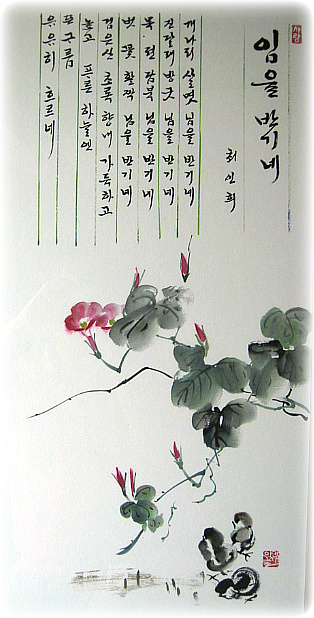 임을 반기네
허인희
개나리 님을 반기네
진달래 방긋 님을 반기네
목련 담북 님을 반기네
벚꽃 활짝 님을 반기네
검은산 초록 향내 가득하고
높고 푸른 하늘엔
유유히 흐르네
사랑